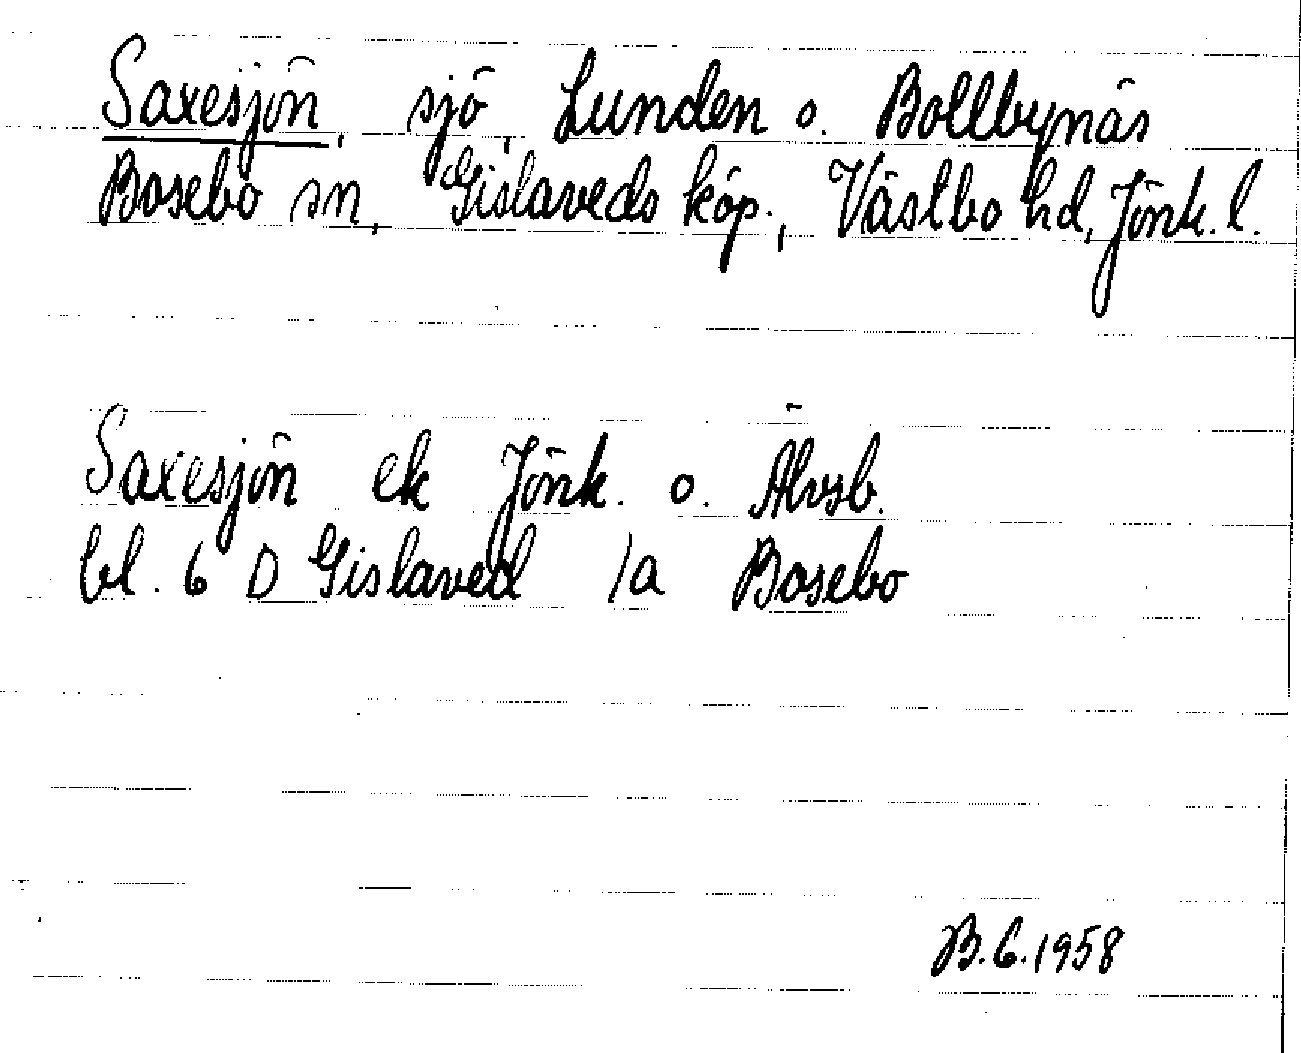 Saxesjön, sjö, Lunden o. Bollbynäs
Bosebo sn, Gislaveds köp., Västbo hd, Jönk. l.
Saxesjön ek Jönk. o. Älvsb.
bl. 6 D Gislaved 1a Bosebo
B.G.1958